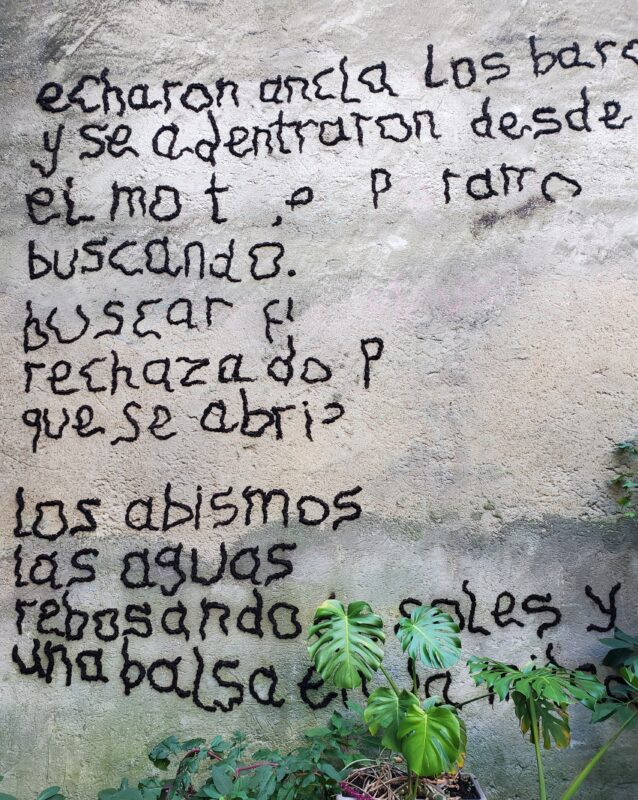 echaron ancla los barc
y se adentraron desde
el mo t
buscando.
buscar
rechazado p
que se abri
los abismos
las aguas
rebosando soles y
una balsa en la